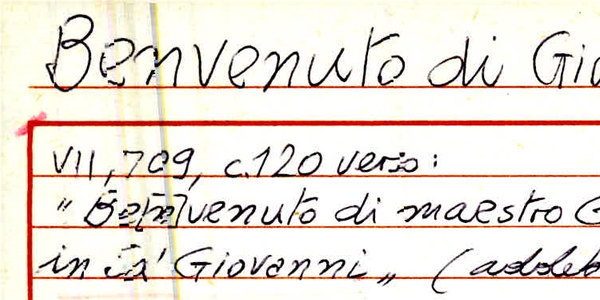 Benvenuto di Gio
VII, 709, c.120 verso:
"Be[n]venuto di maestro G
in Ca' Giovanni" (adoleb